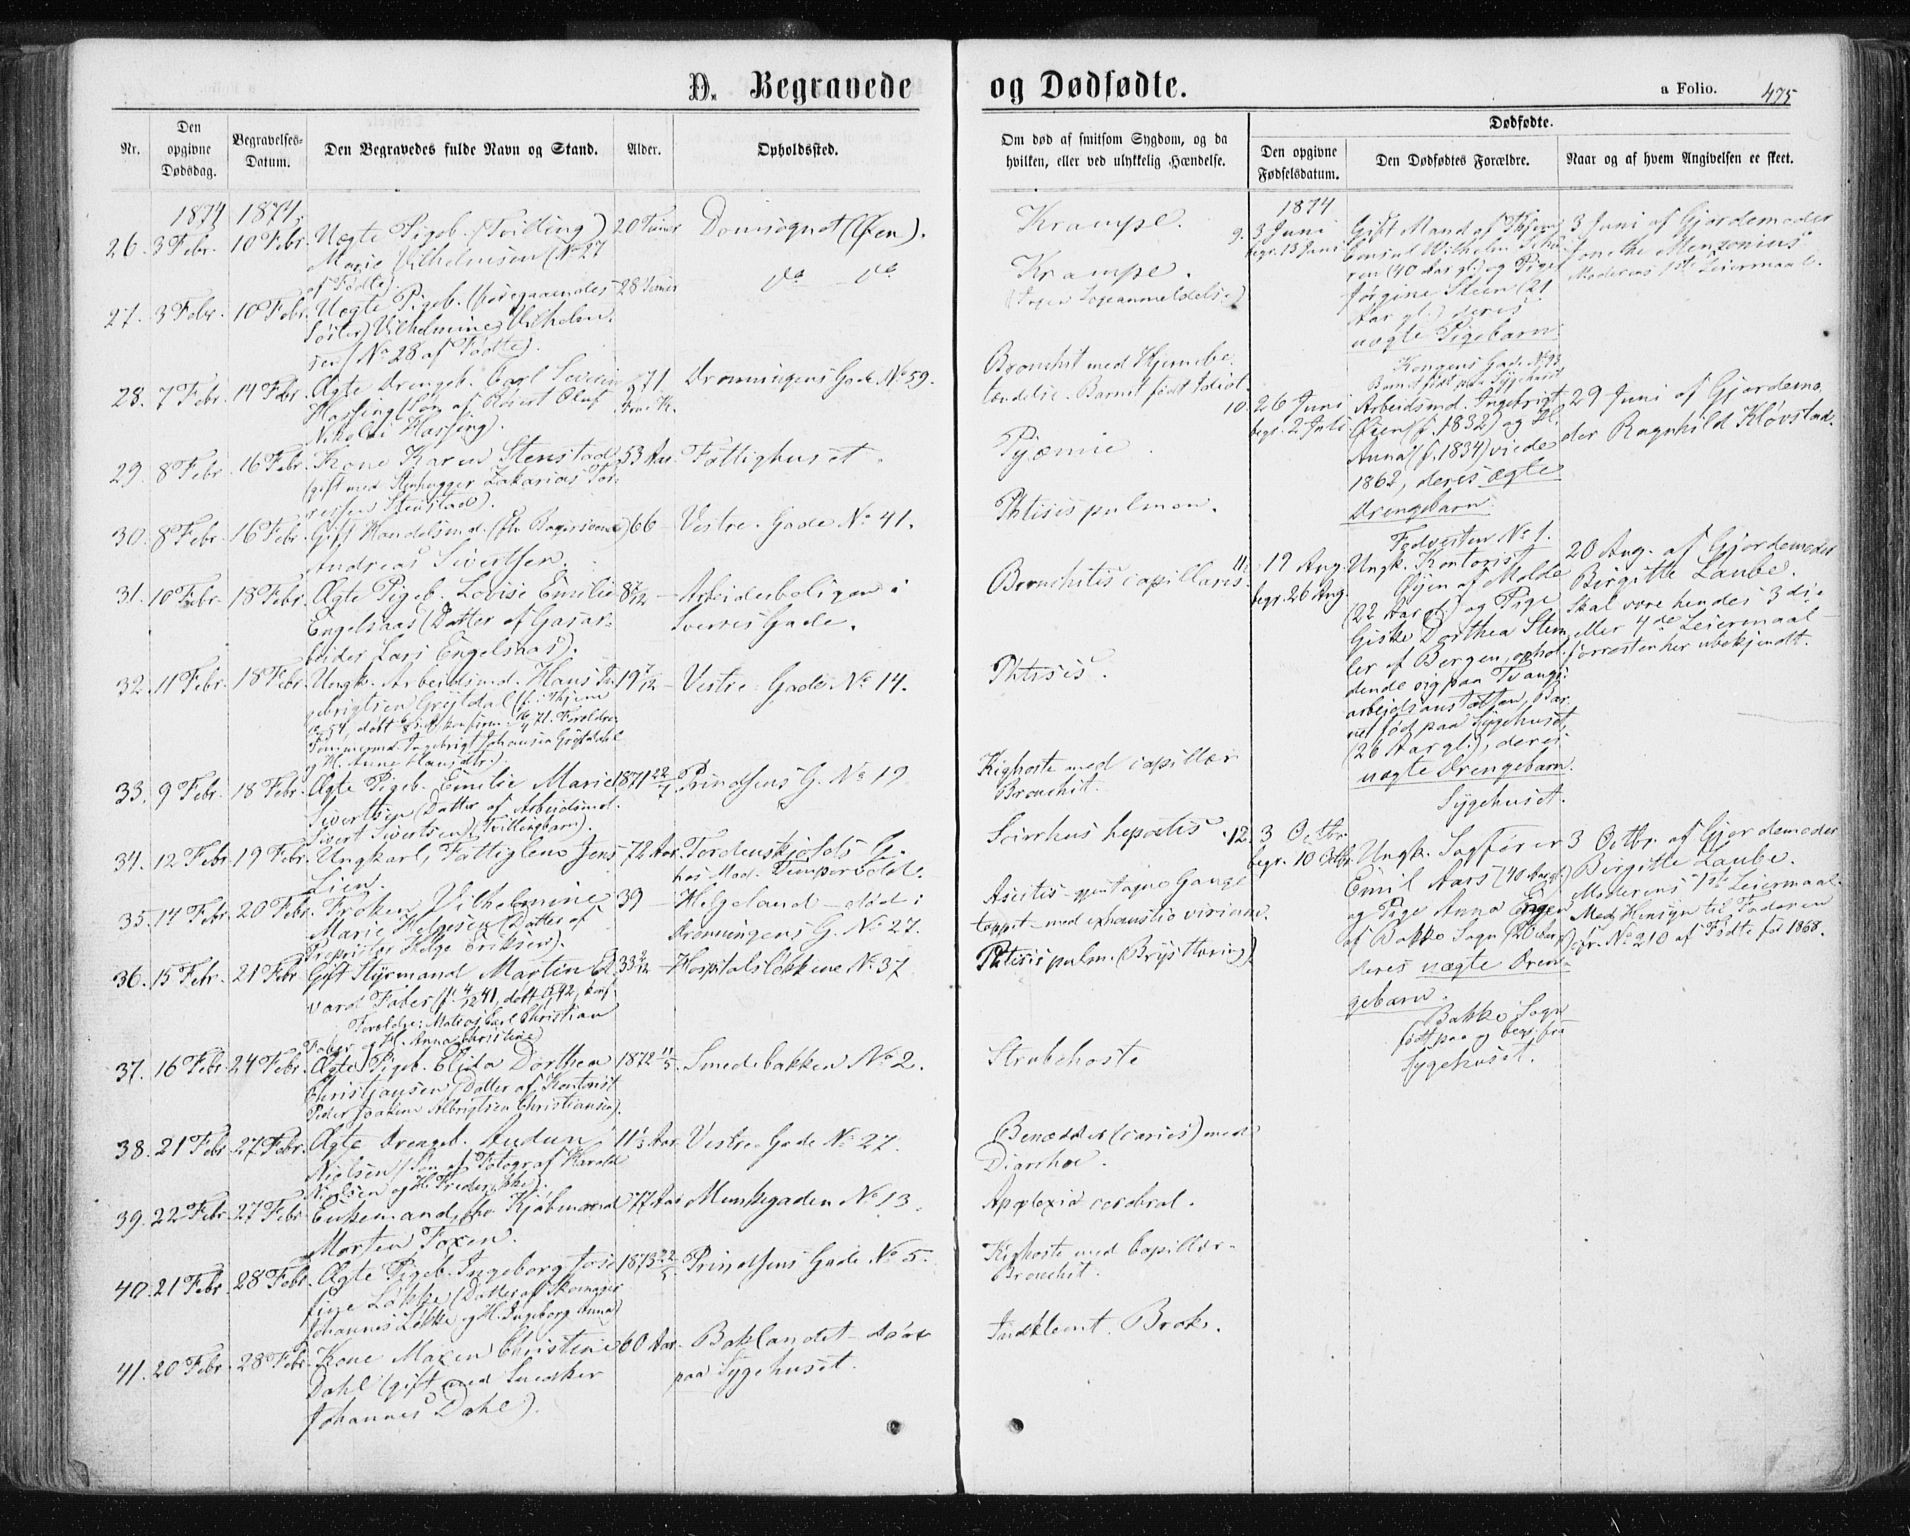 D. Begravede og Dødfødte.
a Folio. 475
Nr.
Den opgivne Dødsdag.
Begravelses-Datum.
Den Begravedes fulde Navn og Stand.
Alder.
Opholdssted.
Om død af smitsom Sygdom, og da hvilken, eller ved ulykkelig Hændelse.
Dødfødte.
Den opgivne Fødselsdatum.
Den Dødfødtes Forældre.
Naar og af hvem Angivelsen er skeet.
1874 1874
26. 3 Febr. 10 Febr. Uægte Pigeb. (Tvilling) 20 Timer Domsognet (Øen). Krampe.
Marie Vilhelmsen (No 27
af Fødte).
27. 3 Febr. 10 Febr. Uægte Pigeb. (foregaaendes 28 Timer do do Krampe.
Søster) Vilhelmine Vilhelm-
sen (No 28 af Fødte).
28. 7 Febr. 14 Febr. Ægte Drengeb. Carl Severin Dronningens Gade No 59. Bronchit med Hjernebe-
Hassing (Søn af Oluf tændelse. Barnet født Idiot.
Nikolai Hassing).
29. 8 Febr. 16 Febr. Kone Karen Stenstad 53 Aar. Fattighuset. Pyæmie.
(gift med Stenhugger Zakarias
Stenstad).
30. 8 Febr. 16 Febr. Gift Handelsmd. 66 Vestre Gade No 41. Phtisis pulmon.
Andreas Sivertsen.
31. 10 Febr. 18 Febr. Ægte Pigeb. Lovise Emilie 8/12 Arbeiderboligen i Bronchitis capillaris.
Engelsaas (Datter af Gasar- Sverres Gade.
beider Lars Engelsaas).
32. 11 Febr. 18 Febr. Ungk. Arbeidsmd. Hans In- 19 Vestre Gade No 14. Phtisis.
gebrigtsen
33. 9 Febr. 18 Febr. Ægte Pigeb. Emilie Marie 1871 22/7 Prindsens G. No 19 Kighoste med capillær
Sivertsen (Datter af Arbeidsmd. Bronchit.
Sivert Sivertsen) (Tvillingbarn).
34. 12 Febr. 19 Febr. Ungkarl, Fattiglem Jens 72 Aar. Tordenskjolds G. Scirrhus hepatis.
Lien. hos Mad. Tempervold.
35. 14 Febr. 20 Febr. Frøken Vilhelmine 39 Helgeland - død i
Marie Helgesen (Datter af Dronningens G. No 27. tappet - med exhaustio virium.
Helge Eriksen).
36. 15 Febr. 21 Febr. Gift Styrmand Martin Ed- 33 Hospitalsløkkene No 37 Phtisis pulm. (Brysttæring)
vard Faber
Forældre: Matros Carl Christian
Faber og H. Anna Christine
37. 16 Febr. 24 Febr. Ægte Pigeb. Elida Dorthea 1872 11/5 Smedebakken No 2. Strubehoste
Christiansen (Datter af Kontorist
Peder Joakim Albrigtsen Christiansen).
38. 21 Febr. 27 Febr. Ægte Drengeb. Audun 11 Aar. Vestre Gade No 27. Benædder (caries) med
Nielsen (Søn af Fotograf Harald Diarrhoe.
Nielsen og H. Frederikke).
39. 22 Febr. 27 Febr. Enkemand, fhv. Kjøbmand 77 Aar Munkegaden No 13. Apoplexia cerebral.
Morten Foxen.
40. 21 Febr. 28 Febr. Ægte Pigeb. Ingeborg Jose- 1873 22/5 Prindsens Gade No 5. Kighoste med Capillær-
fine Løkke (Datter af Skomager Bronchit.
Johannes Løkke og H. Ingeborg Anna)
41. 20 Febr. 28 Febr. Kone Maren Christine 60 Aar. Baklandet - død Indklemt Brok.
Dahl (gift med Snedker paa Sygehuset.
Johannes Dahl).
1874
9. 3 Juni Gift Mand 3 Juni af Gjordemoder
begr. 13 Juni Vilhelm Moderens 1ste Leiermaal.
(40 Aar gl.) og Pige
Jørgine Steen (21
Aar gl.) deres
uægte Pigebarn.
Kongens Gade No 93.
Barnet født paa Sygehuset
10. 26 Juni Arbeidsmd. Ingebrigt 29 Juni af Gjordemo-
begr. 2 Juli Øien (f. 1832) og H. der Ragnhild Kløvstad.
Anna (f. 1834) viede
1862, deres ægte
Drengebarn.
Fedvesten No 1.
11. 19 Aug. Ungk. Kontorist 20 Aug. af Gjordemoder
begr. 26 Aug. Øyen af Molde Birgitte Laube.
(22 Aar gl.) og Pige Skal være hendes 3die
Giske Dorthea Stem- eller 4de Leiermaal -
ler af Bergen, ophol- forresten her ubekjendt.
dende sig paa Tvangs-
arbejdsanstalten, Bar-
net fød paa Sygehuset,
(26 Aar gl.), deres
uægte Drengebarn.
Sygehuset.
12. 3 Octbr. Ungk. Sagfører 3 Octbr. af Gjordemoder
begr. 10 Octbr. Emil Aars (40 Aar gl.) Birgitte Laube.
og Pige Anna Moderens 1ste Leiermaal.
af Bakke Sogn (26 Aar gl.) Med Hensyn til Faderen
deres uægte Dren- cfr. No 210 af Fødte for 1868.
gebarn.
Bakke Sogn
født paa og begr. fra
Sygehuset.